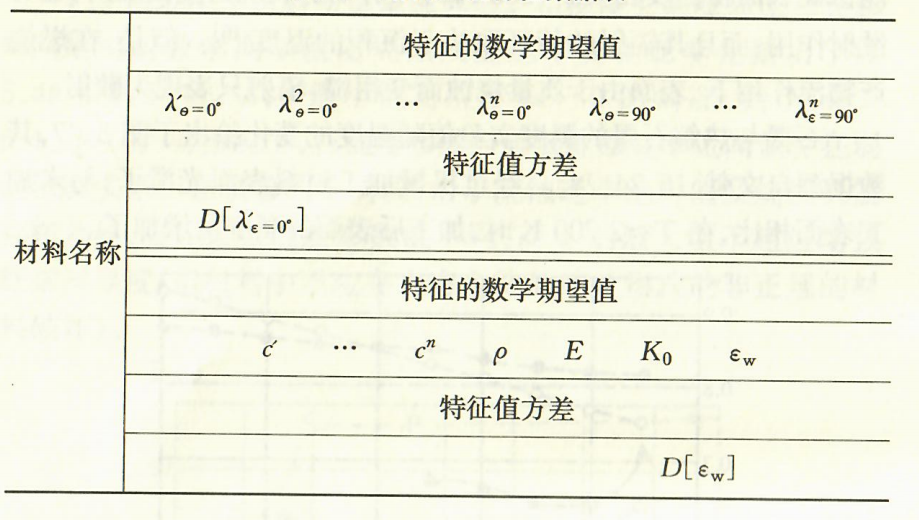 特征的数学期望值
λ′θ=0° λ²θ=0° … λⁿθ=0° λ′,θ=90° … λⁿε=90°
特征值方差
D[λ′ε=0°]
材料名称
特征的数学期望值
c′ … cⁿ ρ E K₀ εw
特征值方差
D[εw]